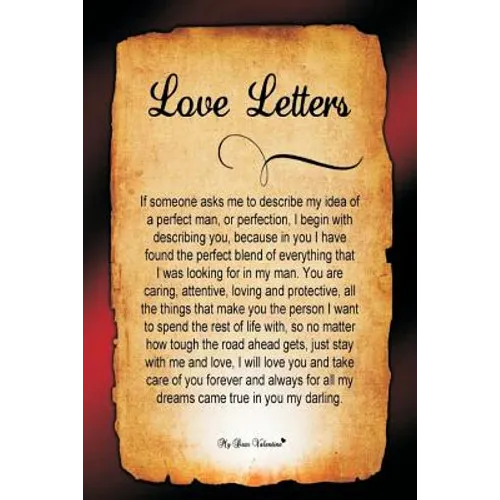 Love Letters
If someone asks me to describe my idea of
a perfect man, or perfection, I begin with
describing you, because in you I have
found the perfect blend of everything that
I was looking for in my man. You are
caring, attentive, loving and protective, all
the things that make you the person I want
to spend the rest of life with, so no matter
how tough the road ahead gets, just stay
with me and love, I will love you and take
care of you forever and always for all my
dreams came true in you my darling.
My Dear Valentine